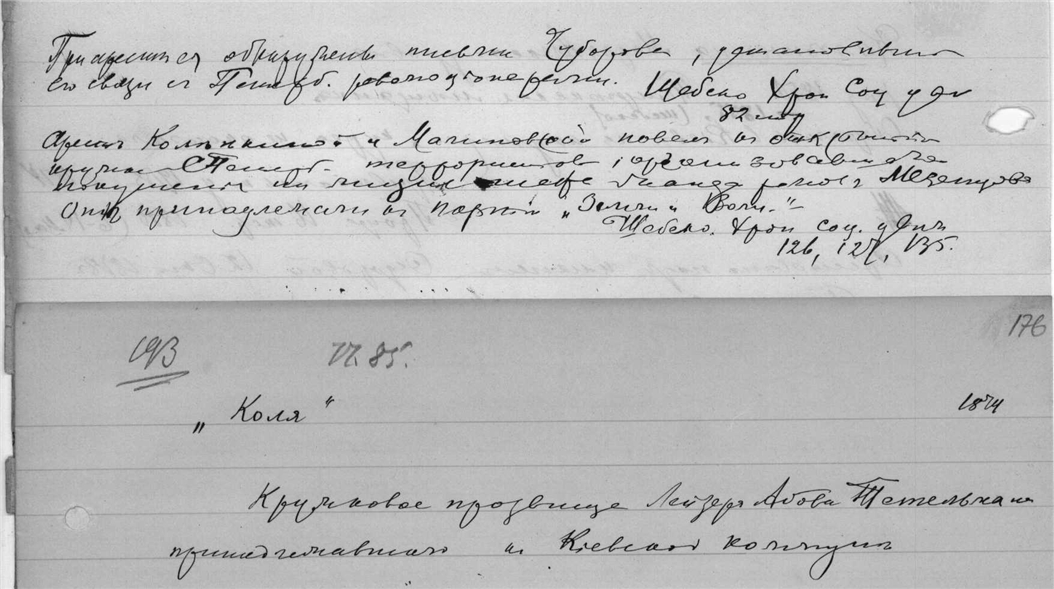 При аресте обнаружены письма Чубарова, установившие
его связи с Петерб. революционерами.
Шебеко Хрон Соц дв
82 стр
Арест Коленкиной и Малиновской повел к открытию
кружка С Петерб. террористов, организовавших
покушение на жизнь шефа жандармов Мезенцова
Они принадлежали к партии „Земли и Воли."
Шебеко. Хрон соц. движ
126, 127, 135.
176
193 85.
„Коля" 1874
Кружковое прозвище Лейзера Абова Тетельмана
принадлежавшего к Киевской коммуне